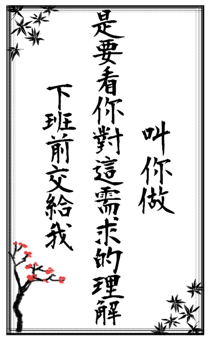 叫你做
是要看你對這需求的理解
下班前交給我